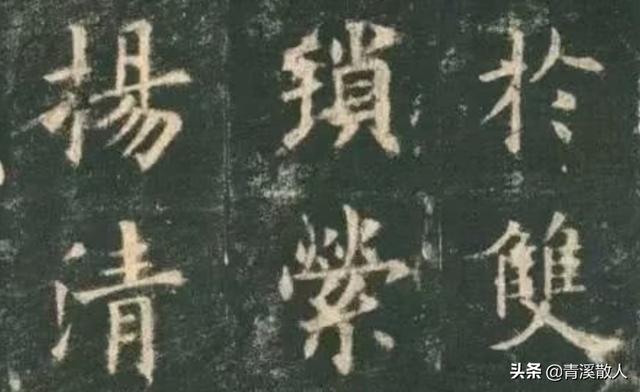 於雙
鎖縈
揚清
头条 @青溪散人